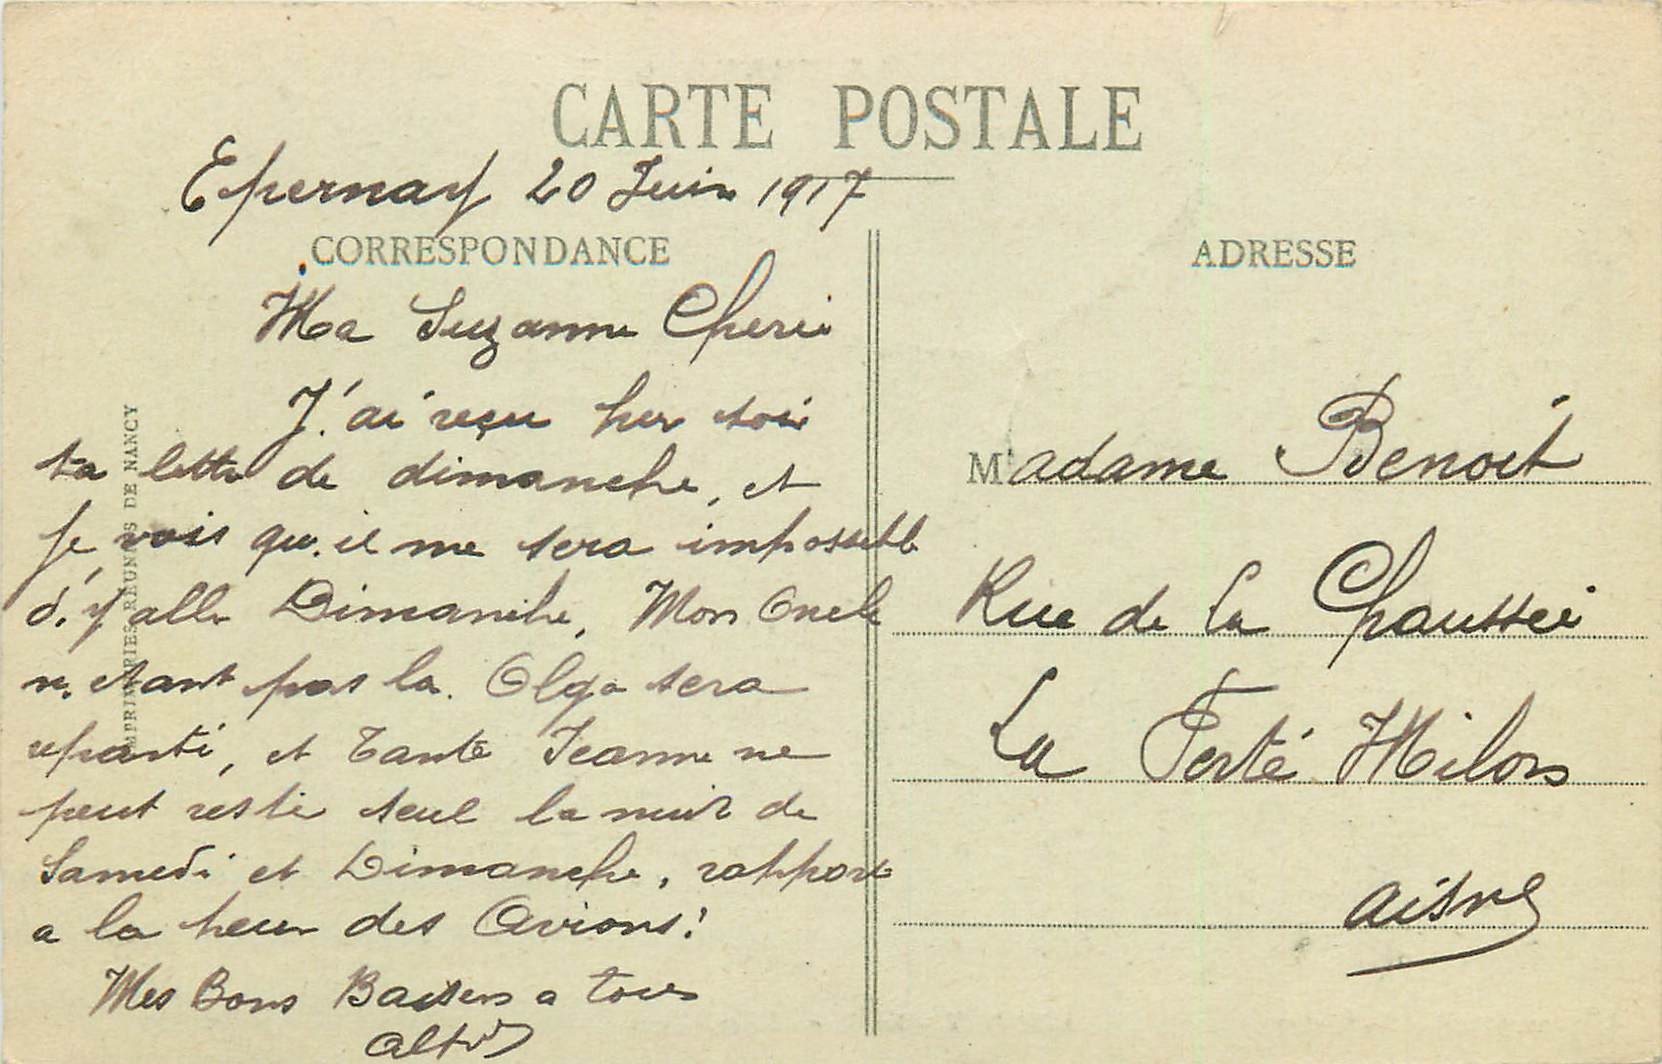 CARTE POSTALE
Epernay 20 Juin 1917
CORRESPONDANCE
Ma Suzanne Cherie
J'ai reçu hier soir
ta lettre de dimanche, et
je vois qu'il me sera impossible
d'y aller Dimanche, Mon Oncle
n'etant pas la. Olga sera
reparti, et Tante Jeanne ne
peut reste seul la nuit de
Samedi et Dimanche, rapport
a la peur des Avions!
Mes Bons Baisers a tous
IMPRIMERIES RÉUNIES DE NANCY
ADRESSE
Madame Benoit
Rue de la Chaussée
La Ferté Milon
Aisne